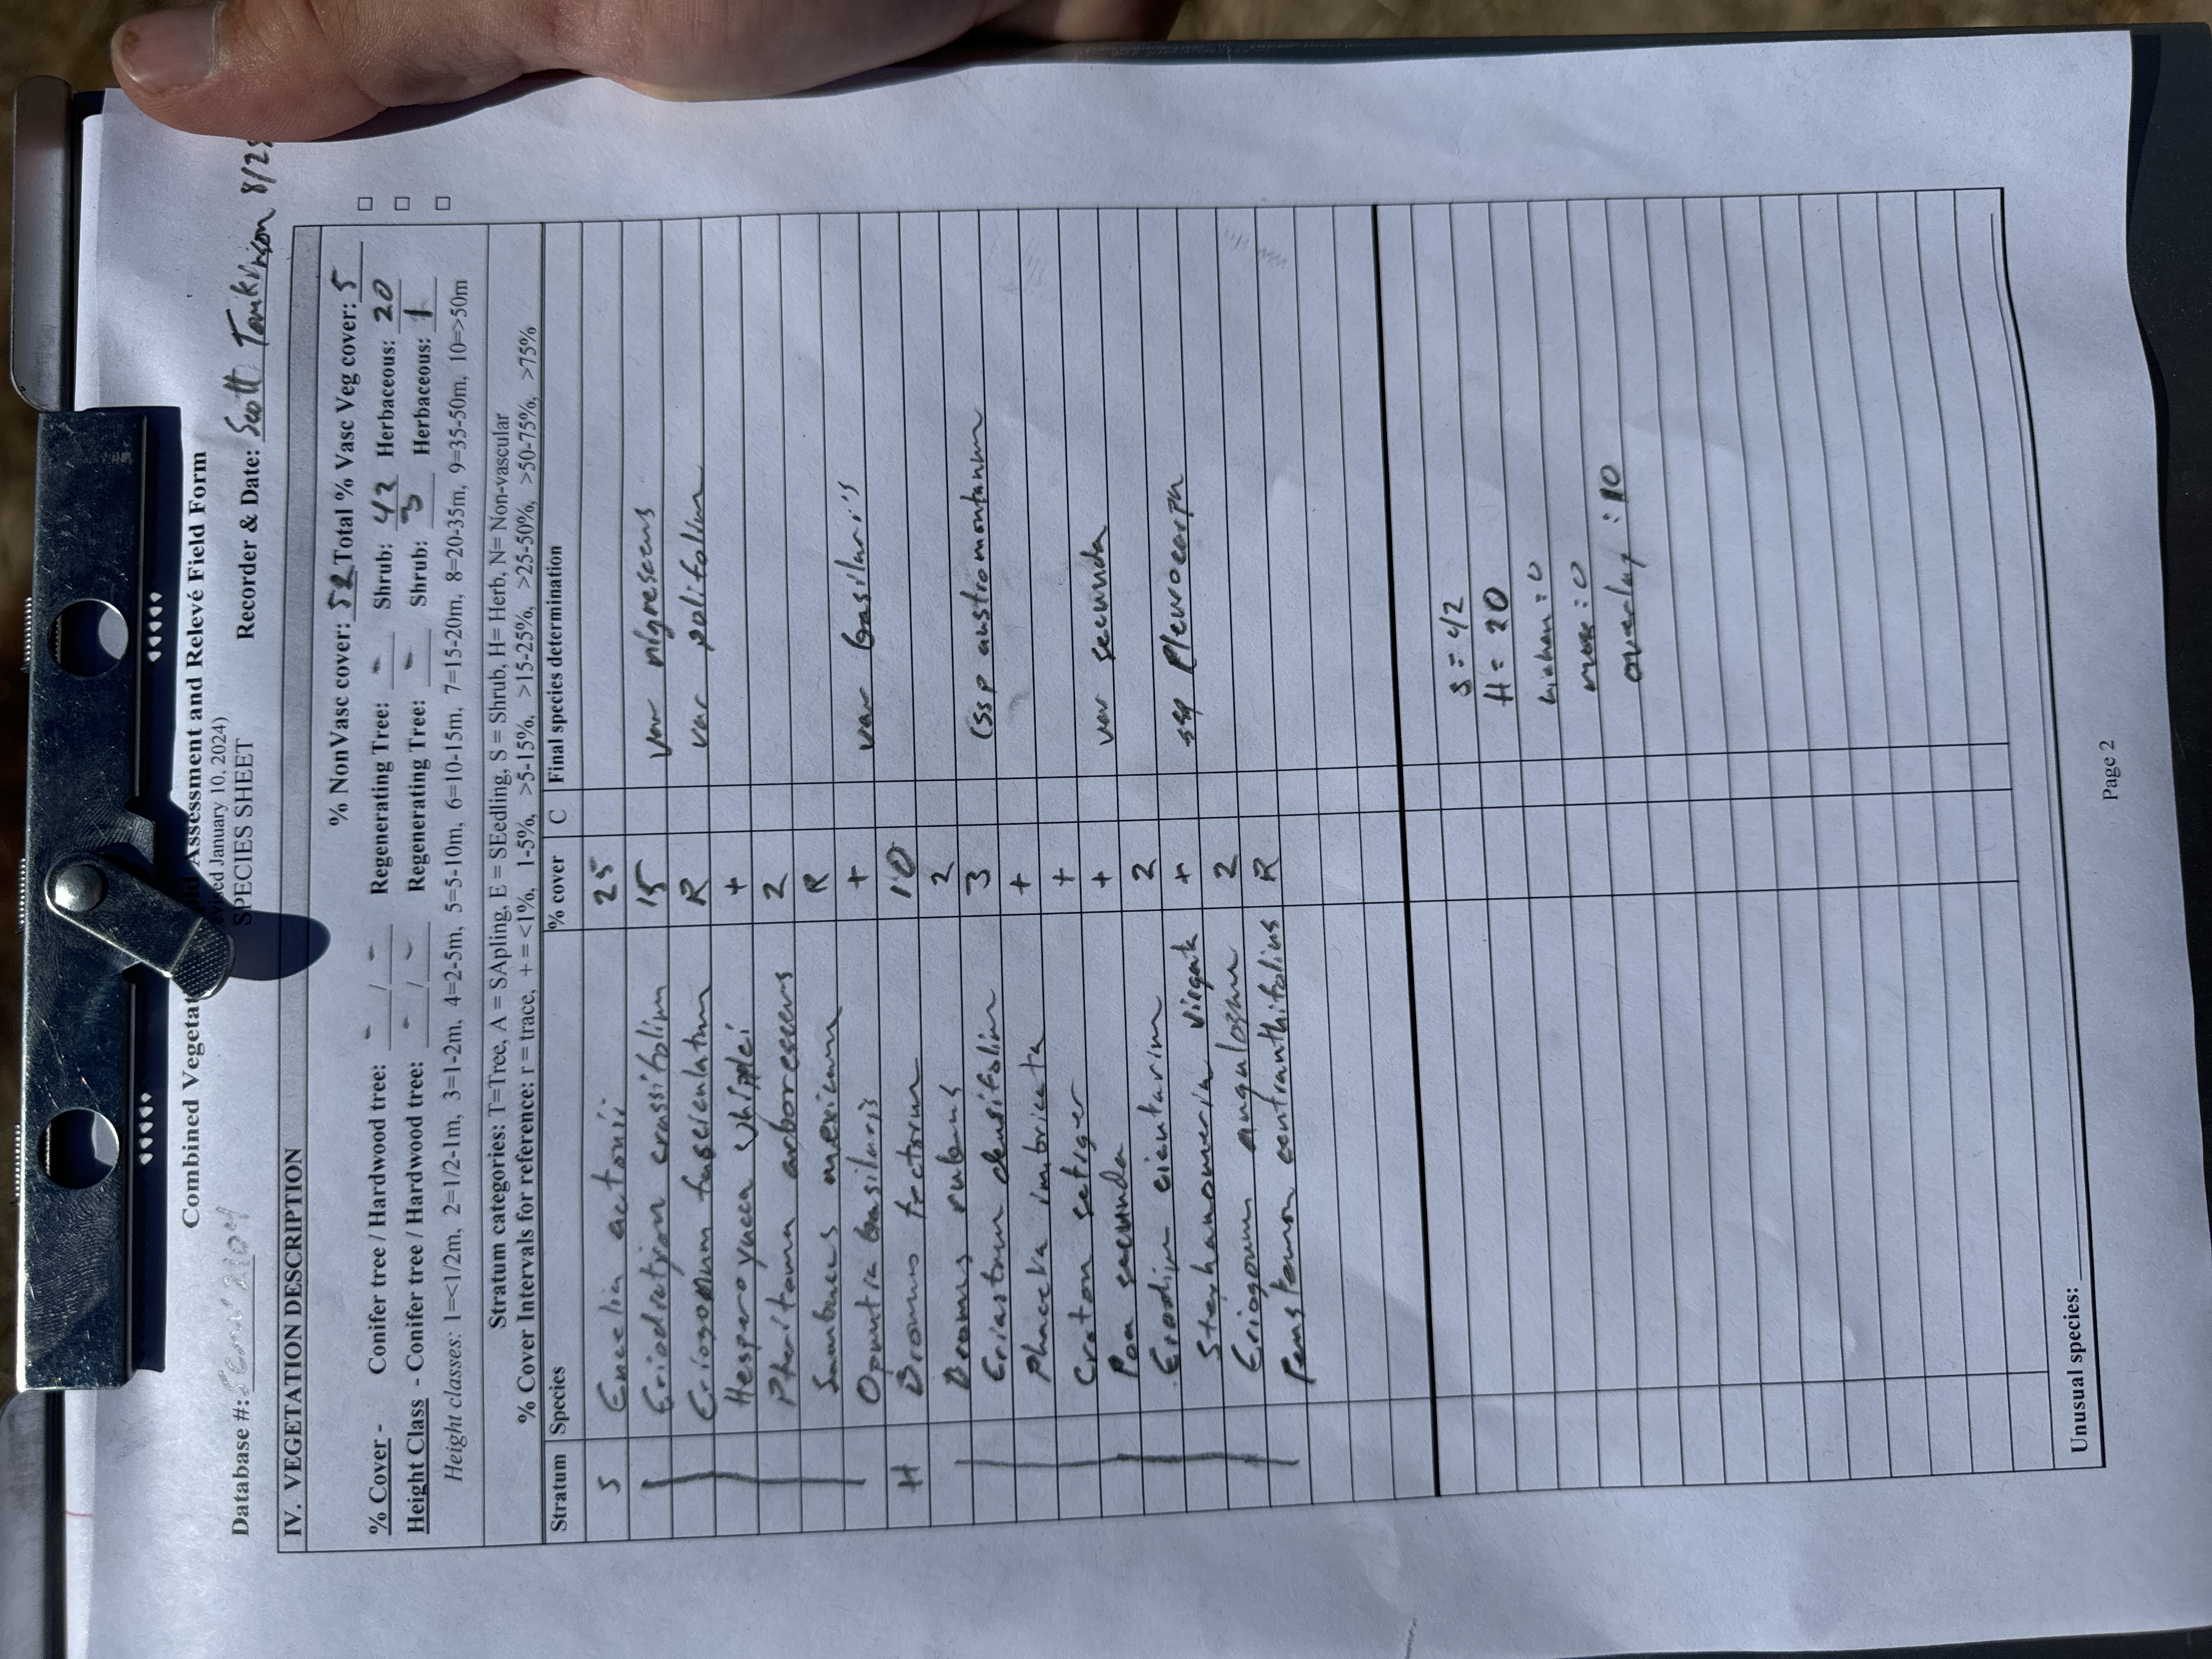 Combined Vegetat Assessment and Relevé Field Form
ised January 10, 2024)
SPECIES SHEET
Database #: Recorder & Date: Scott 8/2
IV. VEGETATION DESCRIPTION
% NonVasc cover: 52 Total % Vasc Veg cover: 5
% Cover - Conifer tree / Hardwood tree: - / - Regenerating Tree: - Shrub: 42 Herbaceous: 20
Height Class - Conifer tree / Hardwood tree: - / - Regenerating Tree: - Shrub: 3 Herbaceous: 1
Height classes: 1=<1/2m, 2=1/2-1m, 3=1-2m, 4=2-5m, 5=5-10m, 6=10-15m, 7=15-20m, 8=20-35m, 9=35-50m, 10=>50m
Stratum categories: T=Tree, A = SApling, E = SEedling, S = Shrub, H= Herb, N= Non-vascular
% Cover Intervals for reference: r = trace, + = <1%, 1-5%, >5-15%, >15-25%, >25-50%, >50-75%, >75%
Stratum Species % cover C Final species determination
S Encelia actonii 25
Eriodictyon crassifolium 15 var nigrescens
Eriogonum fasciculatum R var polifolium
Hesperoyucca whipplei +
Peritoma arborescens 2
Sambucus mexicana R
Opuntia basilaris + var basilaris
H Bromus tectorum 10
Bromus rubens 2
Eriastrum densifolium 3 (ssp austromontanum
Phacelia imbricata +
Croton setiger +
Poa secunda + var secunda
Erodium cicutarium 2
Stephanomeria virgata + ssp Pleurocarpa
Eriogonum angulosum 2
Penstemon centranthifolius R
S = 42
H = 20
lichen = 0
moss : 0
overlap : 10
Unusual species:
Page 2